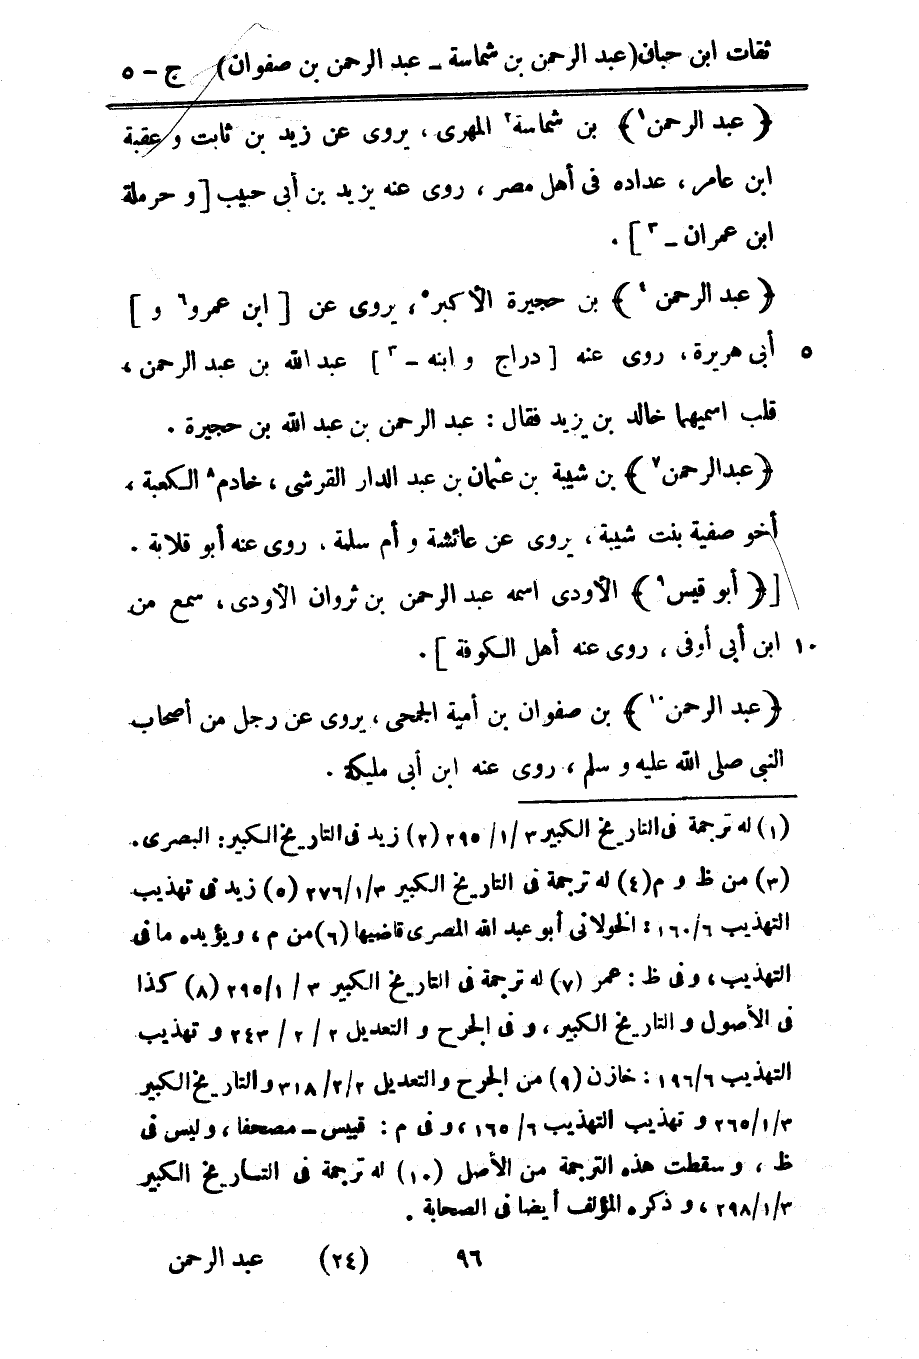 ثقات ابن حبان (عبد الرحمن بن شماسة ـ عبد الرحمن بن صفوان) ج - ٥
﴿ عبد الرحمن ١﴾ بن شماسة ٢ المهرى ، يروى عن زيد بن ثابت و عقبة
ابن عامر ، عداده فى أهل مصر ، روى عنه يزيد بن أبى حبيب [ و حرملة
ابن عمران ـ ٣ ] .
﴿ عبد الرحمن ٤﴾ بن حجيرة الأكبر ٥ ، يروى عن [ ابن عمرو ٦ و ]
٥ أبى هريرة ، روى عنه [ دراج و ابنه ـ ٣ ] عبد الله بن عبد الرحمن ،
قلب اسميهما خالد بن يزيد فقال : عبد الرحمن بن عبد الله بن حجيرة .
﴿ عبد الرحمن ٧﴾ بن شيبة بن عثمان بن عبد الدار القرشى ، خادم ٨ الكعبة ،
أخو صفية بنت شيبة ، يروى عن عائشة و أم سلمة ، روى عنه أبو قلابة .
[ ﴿ أبو قيس ٩﴾ الأودى اسمه عبد الرحمن بن ثروان الأودى ، سمع من
١٠ ابن أبى أوفى ، روى عنه أهل الكوفة ] .
﴿ عبد الرحمن ١٠﴾ بن صفوان بن أمية الجمحى ، يروى عن رجل من أصحاب
النبى صلى الله عليه و سلم ، روى عنه ابن أبى مليكة .
(١) له ترجمة فى التاريخ الكبير ٣ /١ /٢٩٥ (٢) زيد فى التاريخ الكبير: البصرى .
(٣) من ظ و م (٤) له ترجمة فى التاريخ الكبير ٣ /١ /٢٧٦ (٥) زيد فى تهذيب
التهذيب ٦ /١٦٠ : الخولانى أبو عبد الله المصرى قاضيها (٦) من م ، و يؤيده ما فى
التهذيب ، و فى ظ : عمر (٧) له ترجمة فى التاريخ الكبير ٣ / ١ /٢٩٥ (٨) كذا
فى الأصول و التاريخ الكبير ، و فى الجرح و التعديل ٢ / ٢ / ٢٤٣ و تهذيب
التهذيب ٦ /١٩٦ : خازن (٩) من الجرح والتعديل ٢ /٢ /٣١٨ و التاريخ الكبير
٣ /١ /٢٦٥ و تهذيب التهذيب ٦ /١٦٥ ، و فى م : قبيس - مصحفا ، و ليس فى
ظ ، و سقطت هذه الترجمة من الأصل (١٠) له ترجمة فى التاريخ الكبير
٣ /١ /٢٩٨ ، و ذكره المؤلف أيضا فى الصحابة .
٩٦ (٢٤) عبد الرحمن